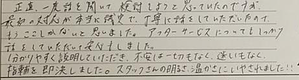 正直一度話を聞いて検討しようと思っていたのですが、
最初の方が本当に誠実で、丁寧に話をしていただいたので、
もうここしかないと思いました。アフターサービスについてもしっかり
話をしていただいて安心しました。
分かりやすく説明していただき、不安は一切もなく、迷いもなく、
指輪を即決しました。スタッフさんの明るさ温かさにいやされました!!